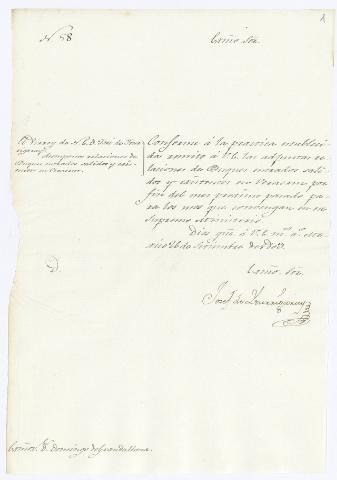 N. 58
Exmo. Sor.
El Virrey de N. E. D. José de Yturrigaray
Acompaña relaciones de
Buques mercantes salidos y exis-
tentes en Veracruz.
Conforme á la practica estable-
cida remito á V. E. las adjuntas re-
laciones de Buques mercantes sali-
dos y existentes en Veracruz por
fin del mes proximo pasado pa-
ra los usos que convengan en ese
Supremo Ministerio.
Dios gue. á V. E. ms. as. Me-
xico 26 de de 180
Exmo. Sor.
Josef de Yturrigaray
Exmo. Sr. D. Domingo de Grandallana.